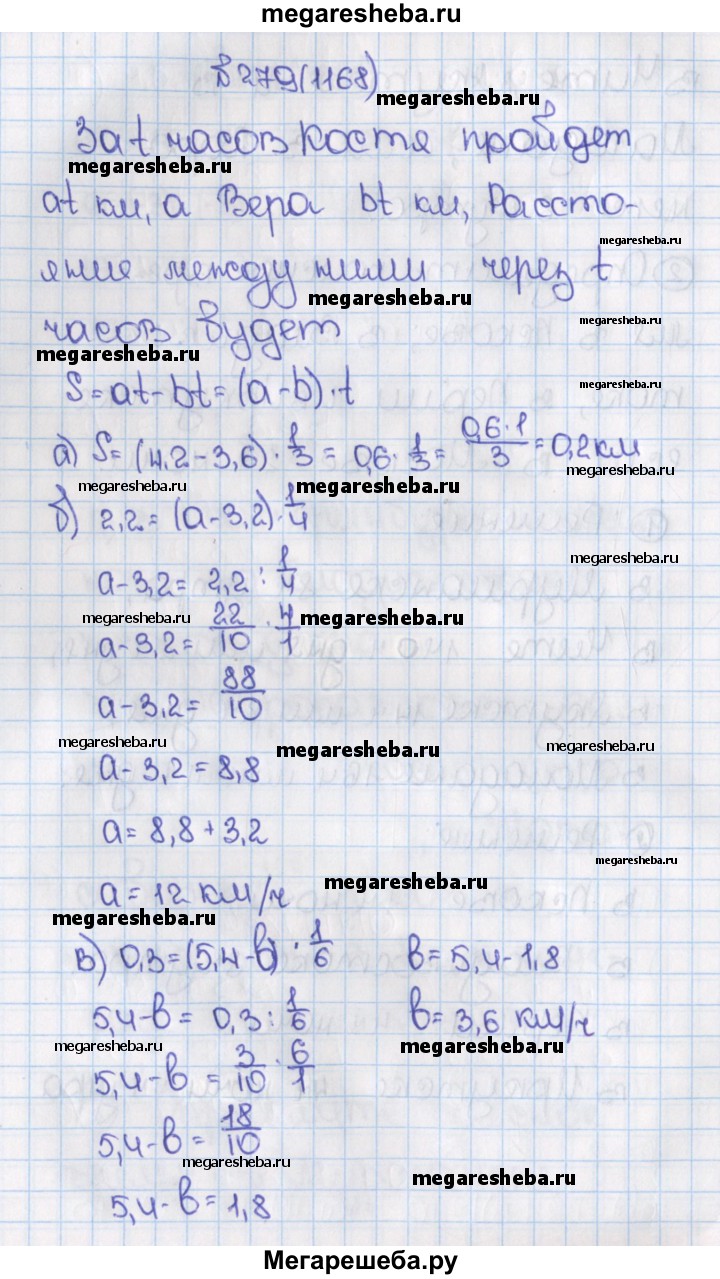 megaresheba.ru
№279(1168)
megaresheba.ru
За t часов Костя пройдет
megaresheba.ru
at км, а Вера bt км, Рассто-
megaresheba.ru
яние между ними через t
megaresheba.ru
часов будет
megaresheba.ru
megaresheba.ru
S = at - bt = (a - b) · t
а) S = (4,2 - 3,6) · 1/3 = 0,6 · 1/3 = 0,6 · 1/3 = 0,2 км
megaresheba.ru
megaresheba.ru
megaresheba.ru
б) 2,2 = (a - 3,2) · 1/4
megaresheba.ru
a - 3,2 = 2,2 : 1/4
megaresheba.ru
megaresheba.ru
a - 3,2 = 22/10 · 4/1
a - 3,2 = 88/10
megaresheba.ru
megaresheba.ru
megaresheba.ru
a - 3,2 = 8,8
a = 8,8 + 3,2
megaresheba.ru
a = 12 км/ч
megaresheba.ru
megaresheba.ru
в) 0,3 = (5,4 - b) · 1/6
5,4 - b = 0,3 : 1/6
megaresheba.ru
5,4 - b = 3/10 · 6/1
5,4 - b = 18/10
megaresheba.ru
5,4 - b = 1,8
b = 5,4 - 1,8
b = 3,6 км/ч
megaresheba.ru
megaresheba.ru
Мегарешеба.ру